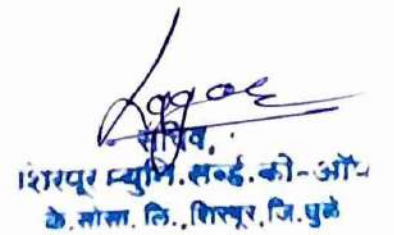 सचिव,
शिरपूर म्युनि. सर्व्हं. को-ऑप
के. सोसा. लि., शिरपूर, जि. धुळे